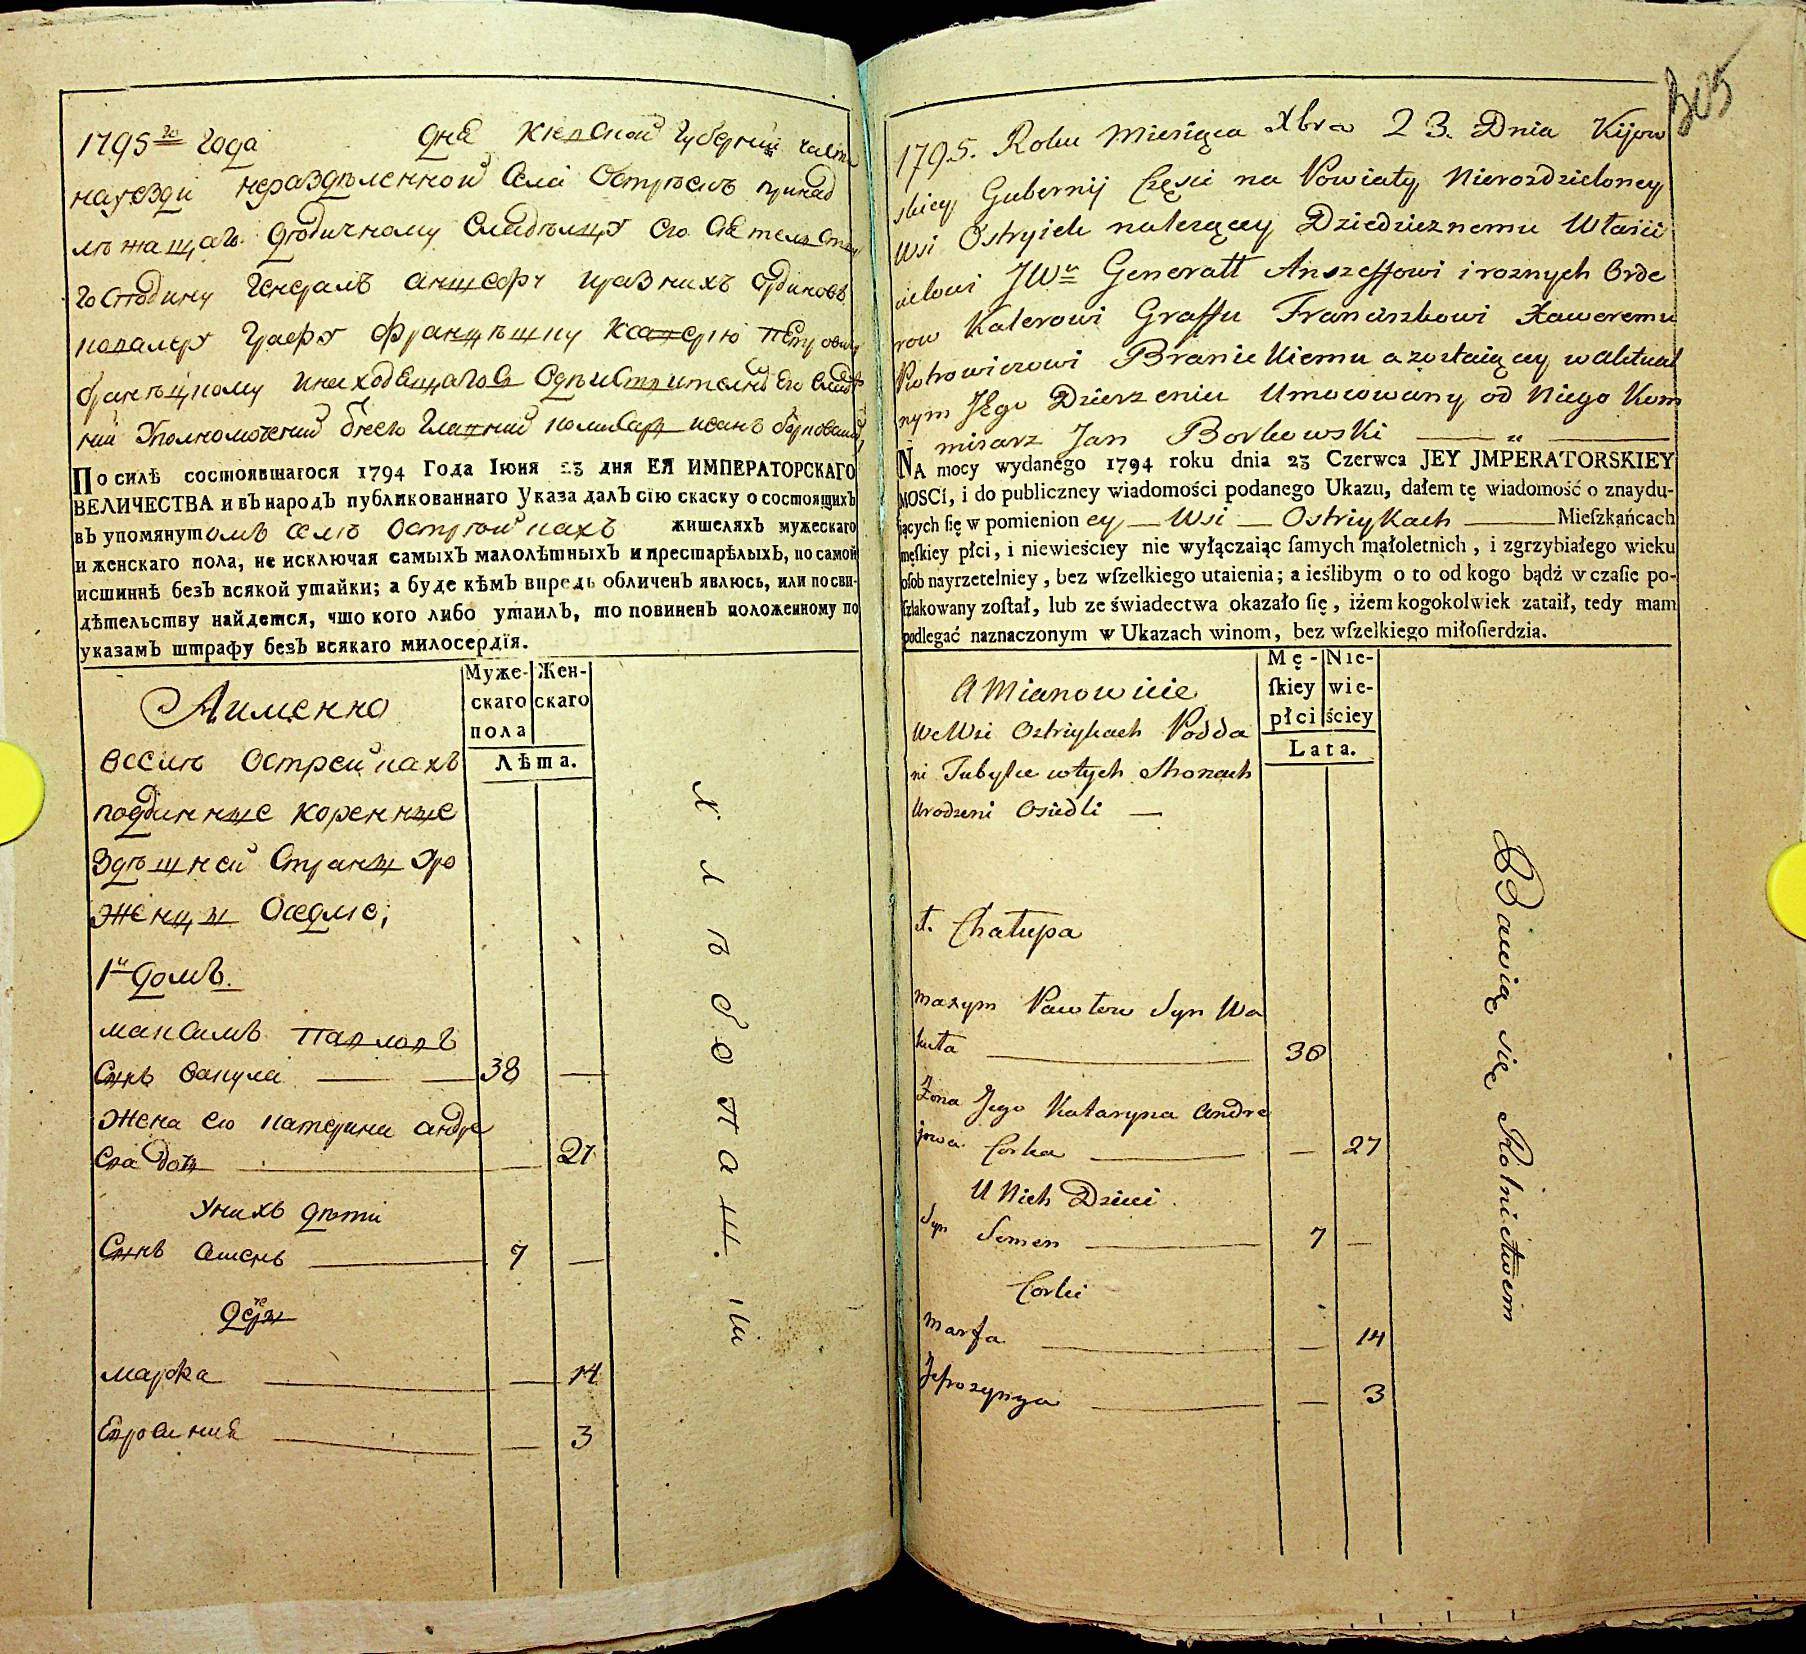 1795го года дня Киевской губернии части
на уезди неразделенной села Остреек принад
лежащаго дедичному владельцу его сиятельству
господину генерал аншефу и разних ординов
кавалеру графу Францишку Ксаверию Петрович
Браницкому и находящагося в действителном его владе
нии уполномоченний от него главний комисар Иван Борковский
По силѣ состоявшагося 1794 Года Iюня 23 дня ЕЯ ИМПЕРАТОРСКАГО
ВЕЛИЧЕСТВА и въ народъ публикованнаго Указа далъ сiю скаску о состоящихъ
въ упомянутомъ селѣ Острѣйкахъ жителяхъ мужескаго
и женскаго пола, не исключая самыхъ малолѣтныхъ и престарѣлыхъ, по самой
истиннѣ безъ всякой утайки; а буде кѣмъ впредь обличенъ явлюсь, или по сви-
дѣтельству найдется, что кого либо утаилъ, то повиненъ положенному по
указамъ штрафу безъ всякаго милосердiя.
Муже- Жен-
скаго скаго
пола
Лѣта.
А именно
в селѣ Острейкахъ
поддинные коренные
здѣшней страны ро
женцы оседлые;
1й домъ.
Максимъ Павловъ
сынъ Вакула 38
Жена его Катерина Андре
ева дочь 27
У нихъ дѣти
Сынъ Семенъ 7
Дочери
Марфа 14
Евросиния 3
Хлѣбопаш.
305
1795. Roku Miesiąca Xbra 23. Dnia Kijow
skiey Gubernij Części na Powiaty Nierozdzieloney
Wsi Ostryiek należącey Dziedzicznemu Właści
cielowi JWu Generałł Anszeffowi i roznych Orde
row Kalerowi Graffu Franciszkowi Xaweremu
Piotrowiczowi Branickiemu a zostaiącey w aktual
nym Jego Dzierzeniu Umocowany od Niego Kom
misarz Jan Borkowski
NA mocy wydanego 1794 roku dnia 23 Czerwca JEY JMPERATORSKIEY
MOSCI, i do publiczney wiadomości podanego Ukazu, dałem tę wiadomość o znaydu-
jących ſię w pomienioney Wsi Ostriykach Mieſzkańcach
męſkiey płci, i niewieściey nie wyłączaiąc ſamych małoletnich, i zgrzybiałego wieku
oſob nayrzetelniey, bez wſzelkiego utaienia; a ieślibym o to od kogo bądź w czaſie po-
ſzlakowany zoſtał, lub ze świadectwa okazało ſię, iżem kogokolwiek zataił, tedy mam
podlegać naznaczonym w Ukazach winom, bez wſzelkiego miłoſierdzia.
Mę- Nie-
ſkiey wie-
płci ściey
Lata.
A Mianowicie
We Wsi Ostriykach Podda
ni Tubylce w tych Stronach
Urodzeni Osiedli
1. Chałupa
Maxym Pawłow Syn Wa
kuła 38
Żona Jego Kataryna Andre
jowa Corka 27
U Nich Dzieci.
Syn Semen 7
Corki
Marfa 14
Jefrozynya 3
Bawią się Rolnictwem